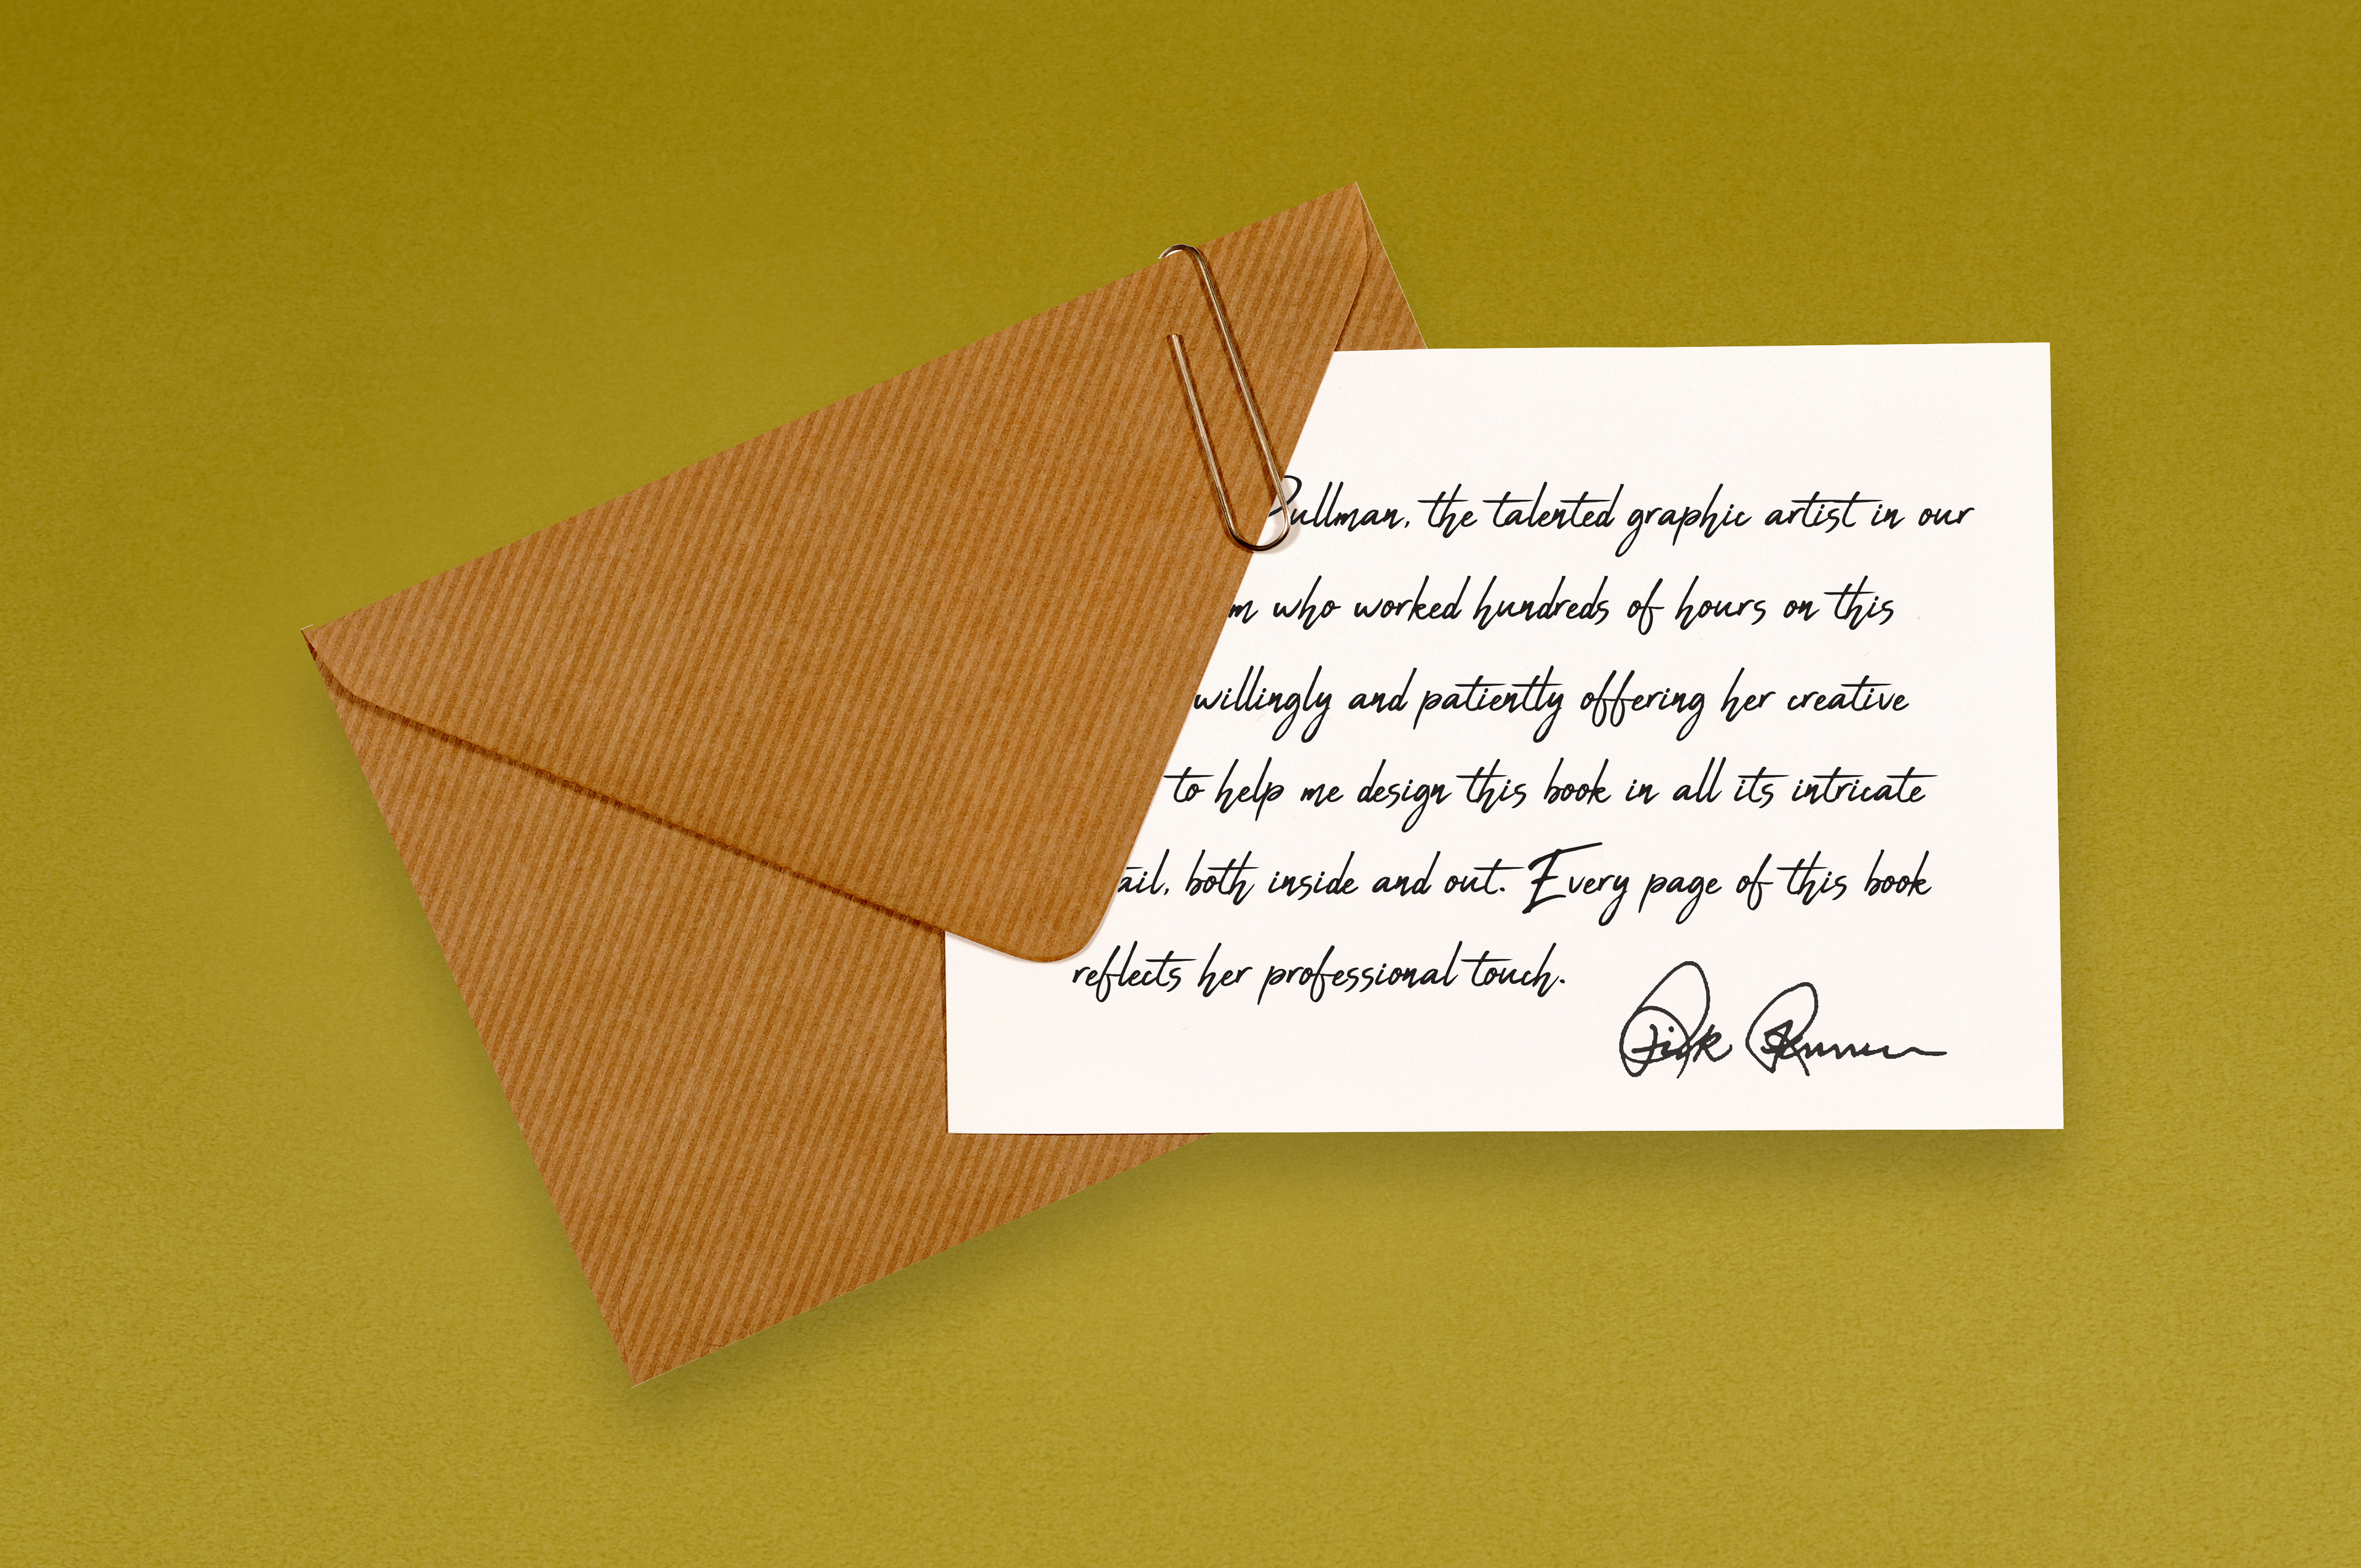 Pullman, the talented graphic artist in our
who worked hundreds of hours on this
willingly and patiently offering her creative
to help me design this book in all its intricate
ail, both inside and out. Every page of this book
reflects her professional touch.